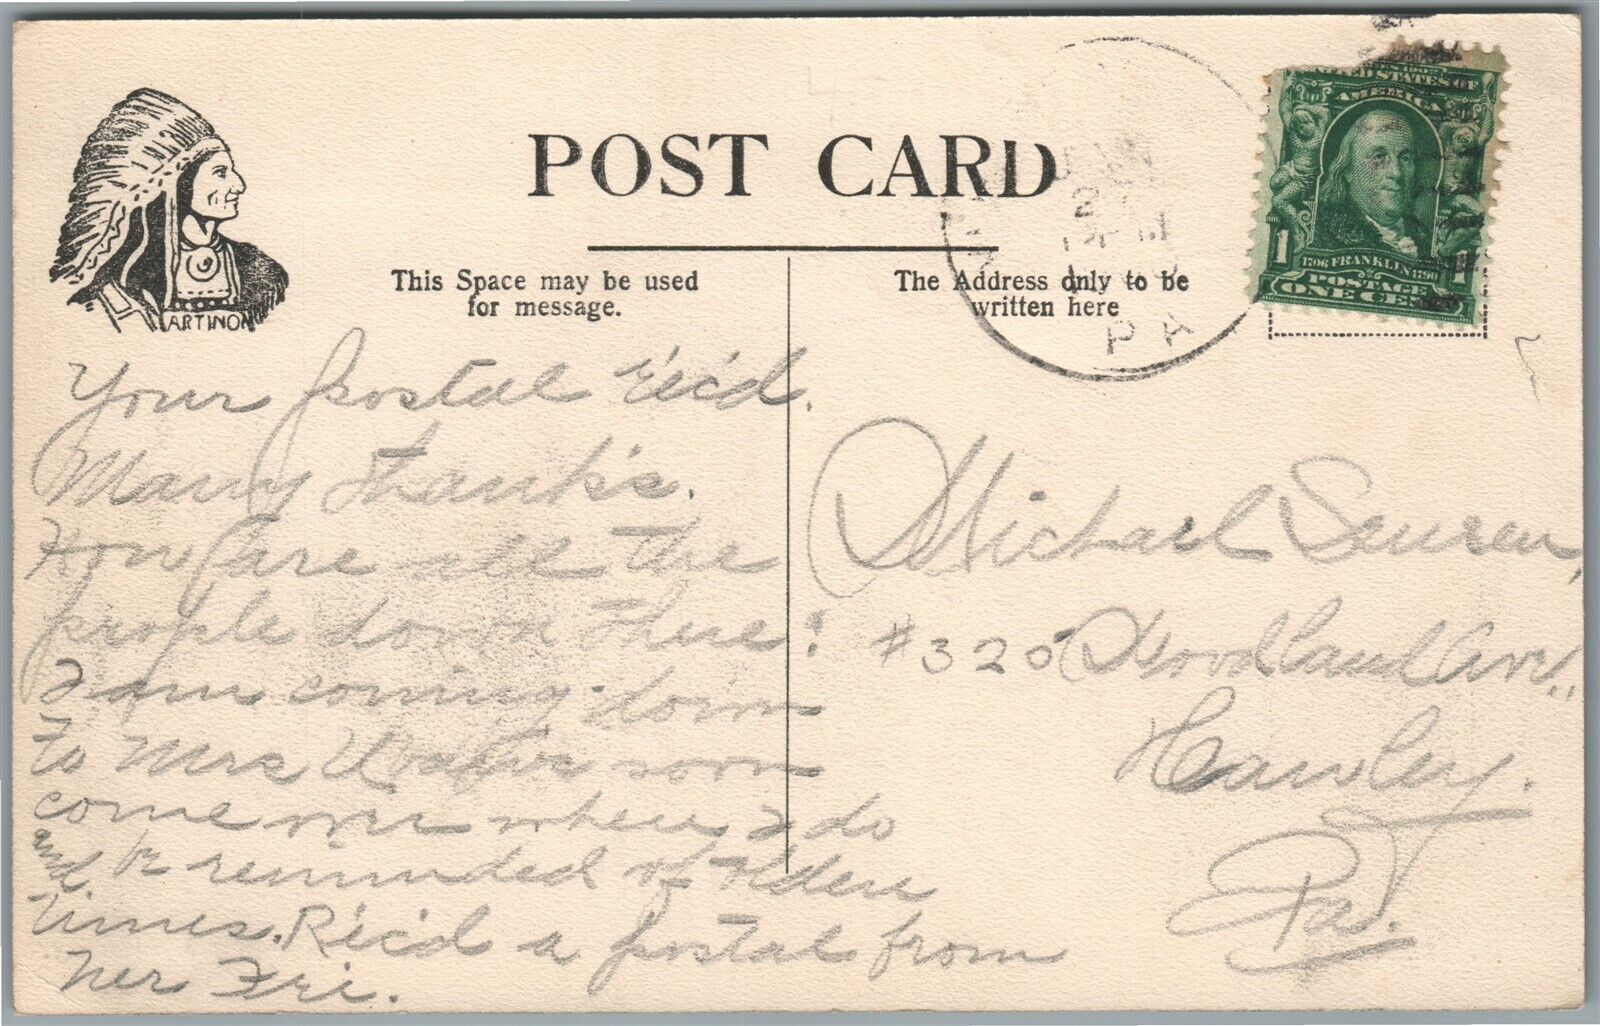 POST CARD
This Space may be used
for message.
The Address only to be
written here
ARTINO
PA
UNITED STATES OF
AMERICA
1
1706 FRANKLIN 1790
POSTAGE
ONE CE
Your postal Rec'd.
Many Thank's.
How are all the
people down there?
I am coming down
to Mrs soon
come over when I do
and be reminded of olden
times. Rec'd a postal from
her Fri.
Michael
#325 Woodland Ave.,
Hawley.
Pa.